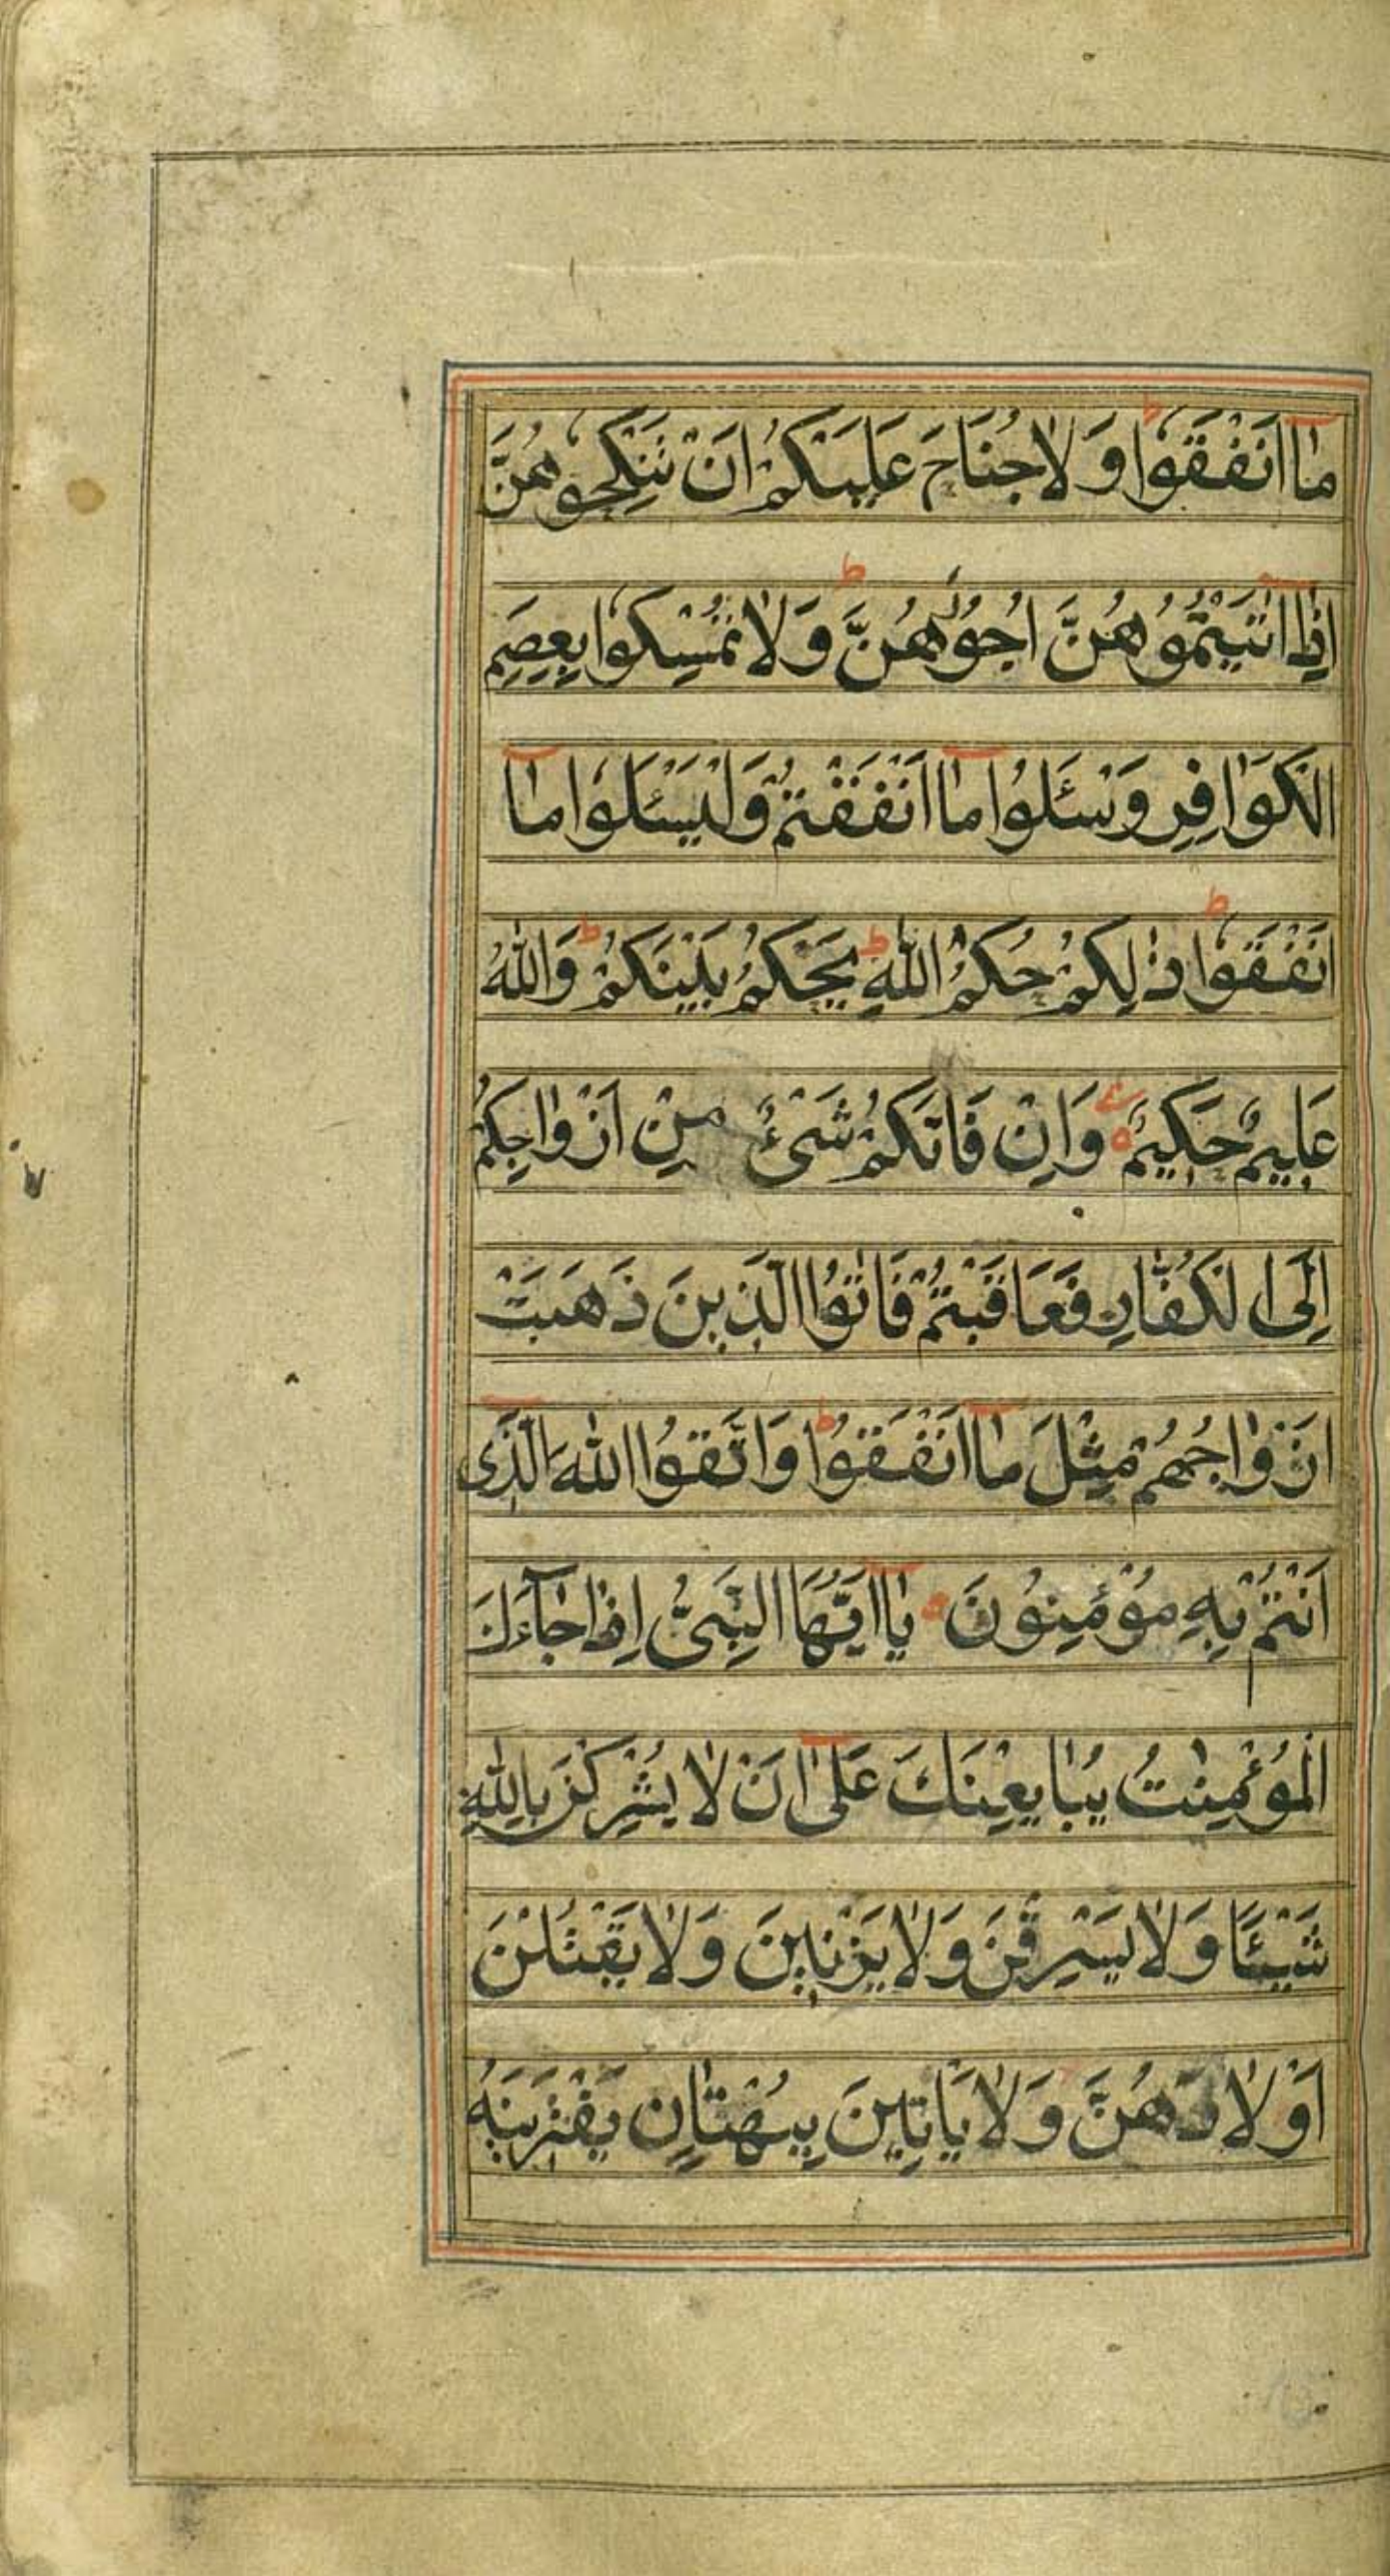 مٰا اَنْفَقُوا وَلٰا جُنَاحَ عَلَيْكُمْ اَنْ تَنْكِحُوهُنَّ
اِذٰا اٰتَيْتُمُوهُنَّ اُجُورَهُنَّ وَلٰا تُمْسِكُوا بِعِصَمِ
الْكَوَافِرِ وَسْئَلُوا مٰا اَنْفَقْتُمْ وَلْيَسْئَلُوا مٰا
اَنْفَقُوا ذٰلِكُمْ حُكْمُ اللّٰهِ يَحْكُمُ بَيْنَكُمْ وَاللّٰهُ
عَلِيمٌ حَكِيمٌ وَاِنْ فَاتَكُمْ شَىْءٌ مِنْ اَزْوٰاجِكُمْ
اِلَى الْكُفّٰارِ فَعَاقَبْتُمْ فَاٰتُوا الَّذِينَ ذَهَبَتْ
اَزْوٰاجُهُمْ مِثْلَ مٰا اَنْفَقُوا وَاتَّقُوا اللّٰهَ الَّذِى
اَنْتُمْ بِهِ مُؤْمِنُونَ يٰا اَيُّهَا النَّبِىُّ اِذٰا جٰاءَكَ
الْمُؤْمِنٰتُ يُبٰايِعْنَكَ عَلٰى اَنْ لٰا يُشْرِكْنَ بِاللّٰهِ
شَيْئًا وَلٰا يَسْرِقْنَ وَلٰا يَزْنِينَ وَلٰا يَقْتُلْنَ
اَوْلٰادَهُنَّ وَلٰا يَاتِينَ بِبُهْتٰانٍ يَفْتَرِينَهُ